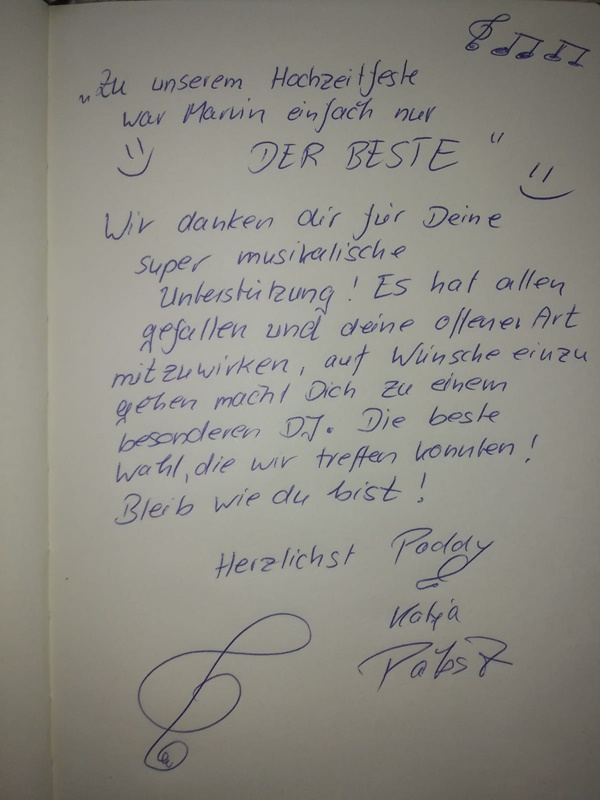 „Zu unserem Hochzeitfeste
war Marvin einfach nur
DER BESTE"
Wir danken dir für Deine
super musikalische
Unterstützung! Es hat allen
gefallen und deine offener Art
mitzuwirken, auf Wünsche einzu
gehen macht Dich zu einem
besonderen DJ. Die beste
Wahl, die wir treffen konnten!
Bleib wie du bist!
Herzlichst Paddy
&
Katja
Pabst